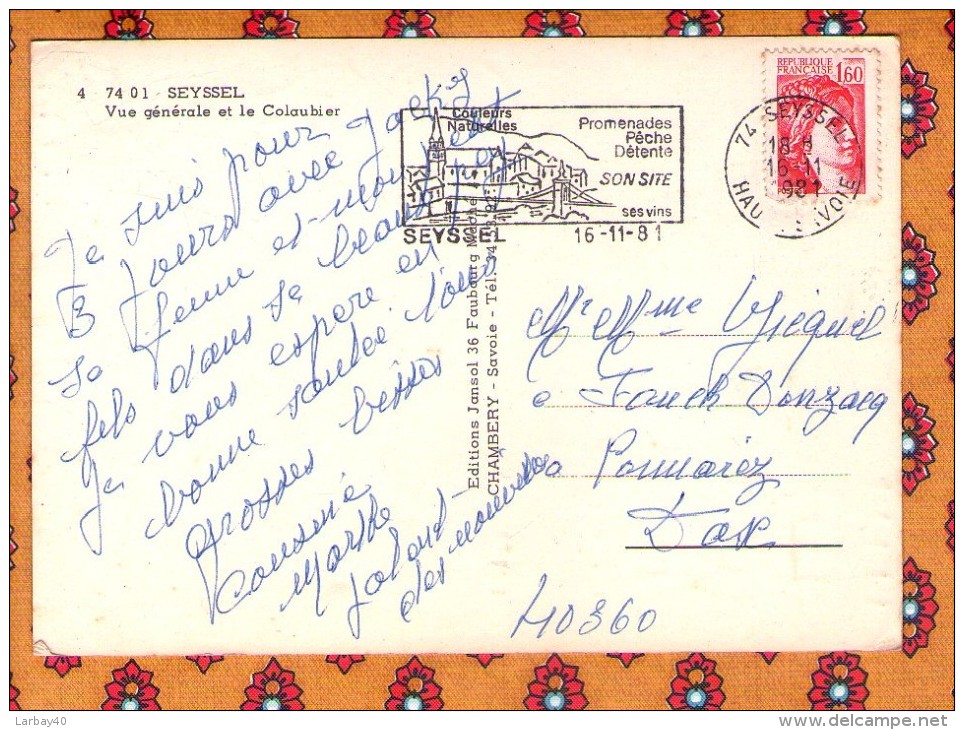 4 74 01 - SEYSSEL
Vue générale et le Colaubier
Je suis pour
3 jours avec Jacky
sa femme et mon petit
fils dans sa beau
Je vous espere en
bonne santée. Tous
grosses bisses
Cousine
Marthe
des nouvelles
Couleurs
Naturelles
Promenades
Pêche
Détente
SON SITE
ses vins
SEYSSEL 16-11-81
REPUBLIQUE
FRANÇAISE 1,60
74 SEYSSEL
18 H
16-11
1981
HAU VOIE
Editions Jansol 36 Faubourg
CHAMBERY - Savoie - Tél. 34
Mr Mme
à Donzacq
Pomarez
Dax
40360
Larbay40
www.delcampe.net